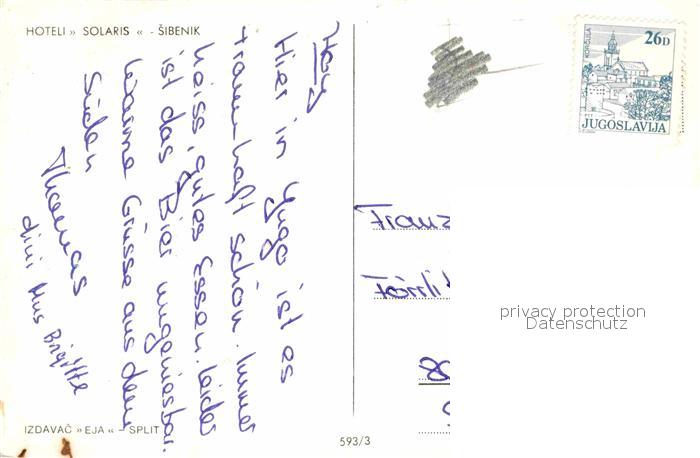 HOTELI » SOLARIS « - ŠIBENIK
Hier in Yugo ist es
traumhaft schön. Immer
heiss, gutes Essen. leider
ist das Bier ungeniesbar.
Warme Grüsse aus dem
Süden
Thomas
dini Mus Brigitte
IZDAVAČ » EJA « - SPLIT
593/3
KORČULA
26D
PTT
JUGOSLAVIJA
Franz
privacy protection
Datenschutz